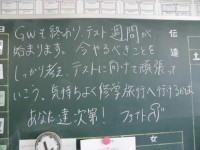 GWも終わり、テスト週間が
始まります。今やるべきことを
しっかり考え、テストに向けて頑張って
いこう。気持ちよく修学旅行へ行けるかは
あなた達次第! ファイト
伝達
女